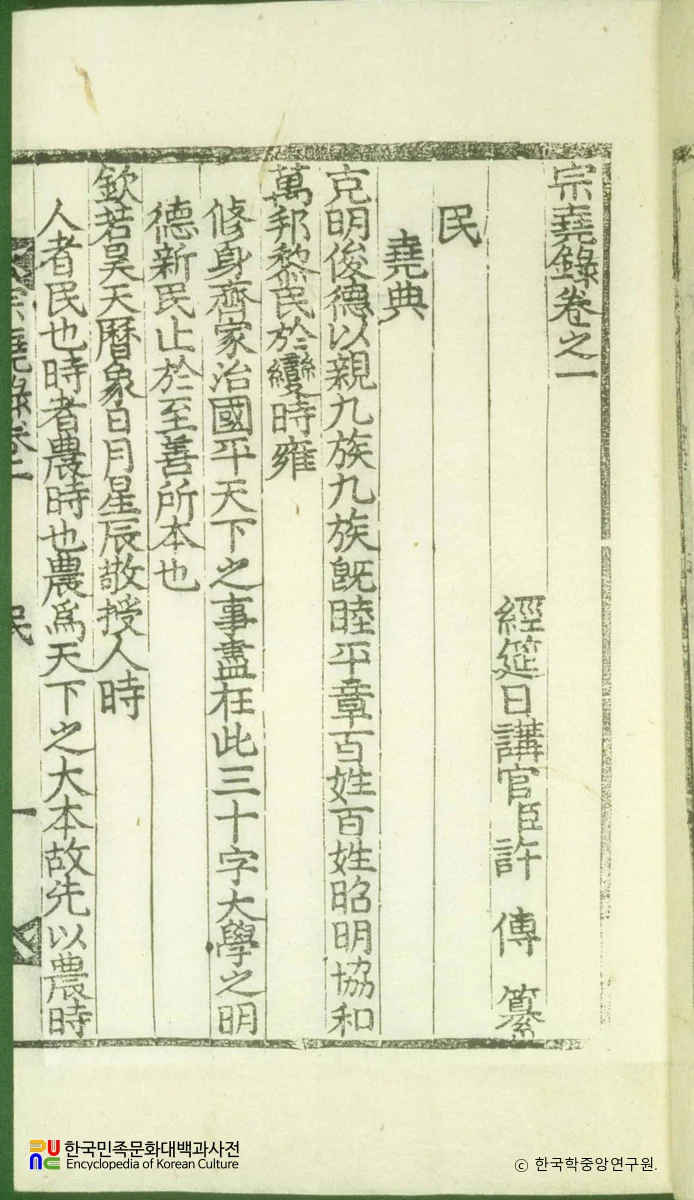 宗堯錄卷之一
經筵日講官臣許 傳 纂
民
堯典
克明俊德以親九族九族旣睦平章百姓百姓昭明協和
萬邦黎民於變時雍
修身齊家治國平天下之事盡在此三十字大學之明
德新民止於至善所本也
欽若昊天曆象日月星辰敬授人時
人者民也時者農時也農爲天下之大本故先以農時
宗堯錄卷一 民 一
한국민족문화대백과사전
Encyclopedia of Korean Culture
ⓒ 한국학중앙연구원.